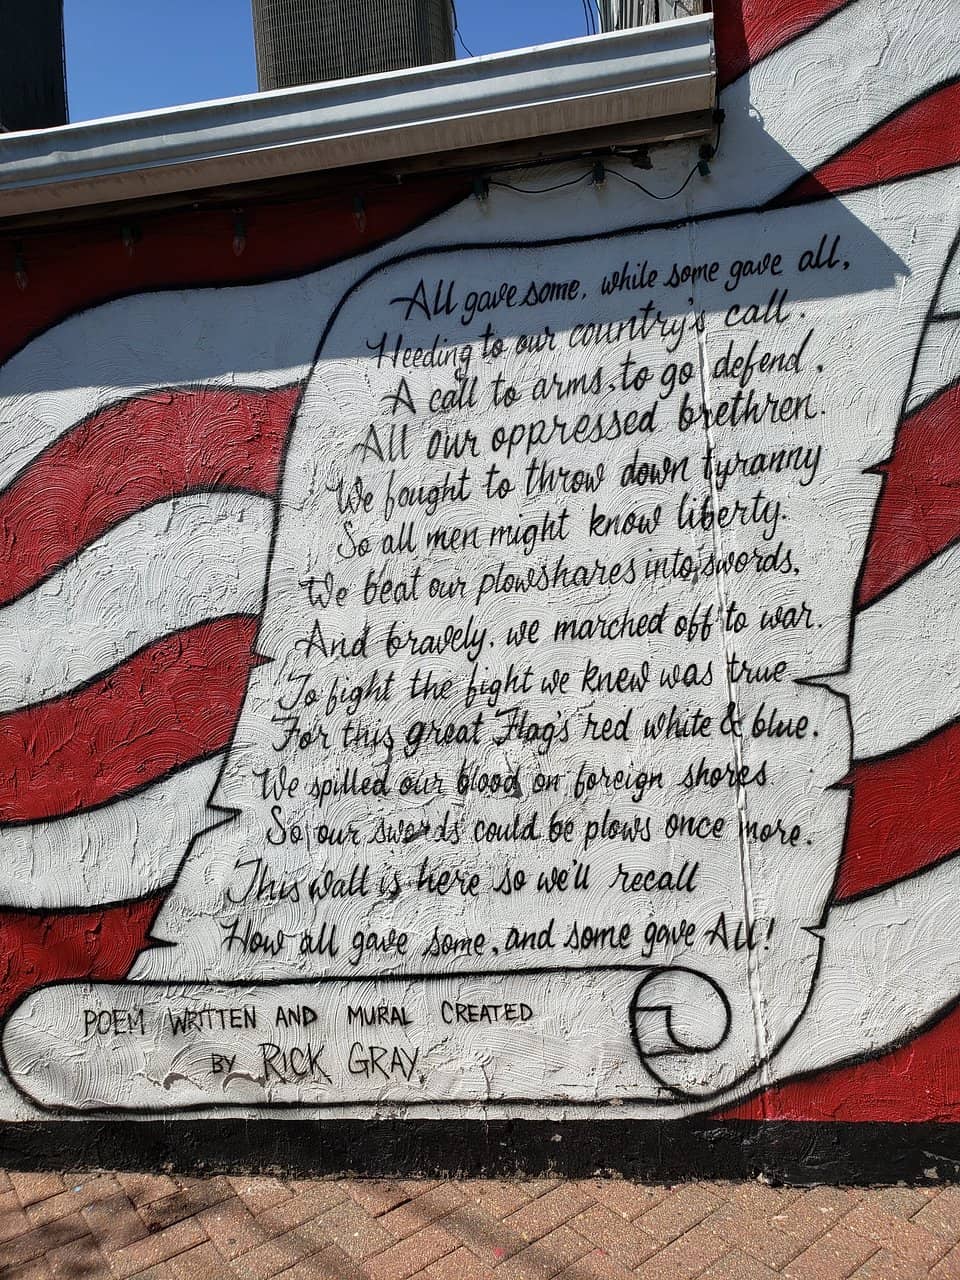 All gave some, while some gave all,
Heeding to our country's call.
A call to arms, to go defend,
All our oppressed brethren.
We fought to throw down tyranny
So all men might know liberty.
We beat our plowshares into swords,
And bravely, we marched off to war.
To fight the fight we knew was true
For this great Flag's red white & blue.
We spilled our blood on foreign shores
So our swords could be plows once more.
This wall is here so we'll recall
How all gave some, and some gave All!
POEM WRITTEN AND MURAL CREATED
BY RICK GRAY